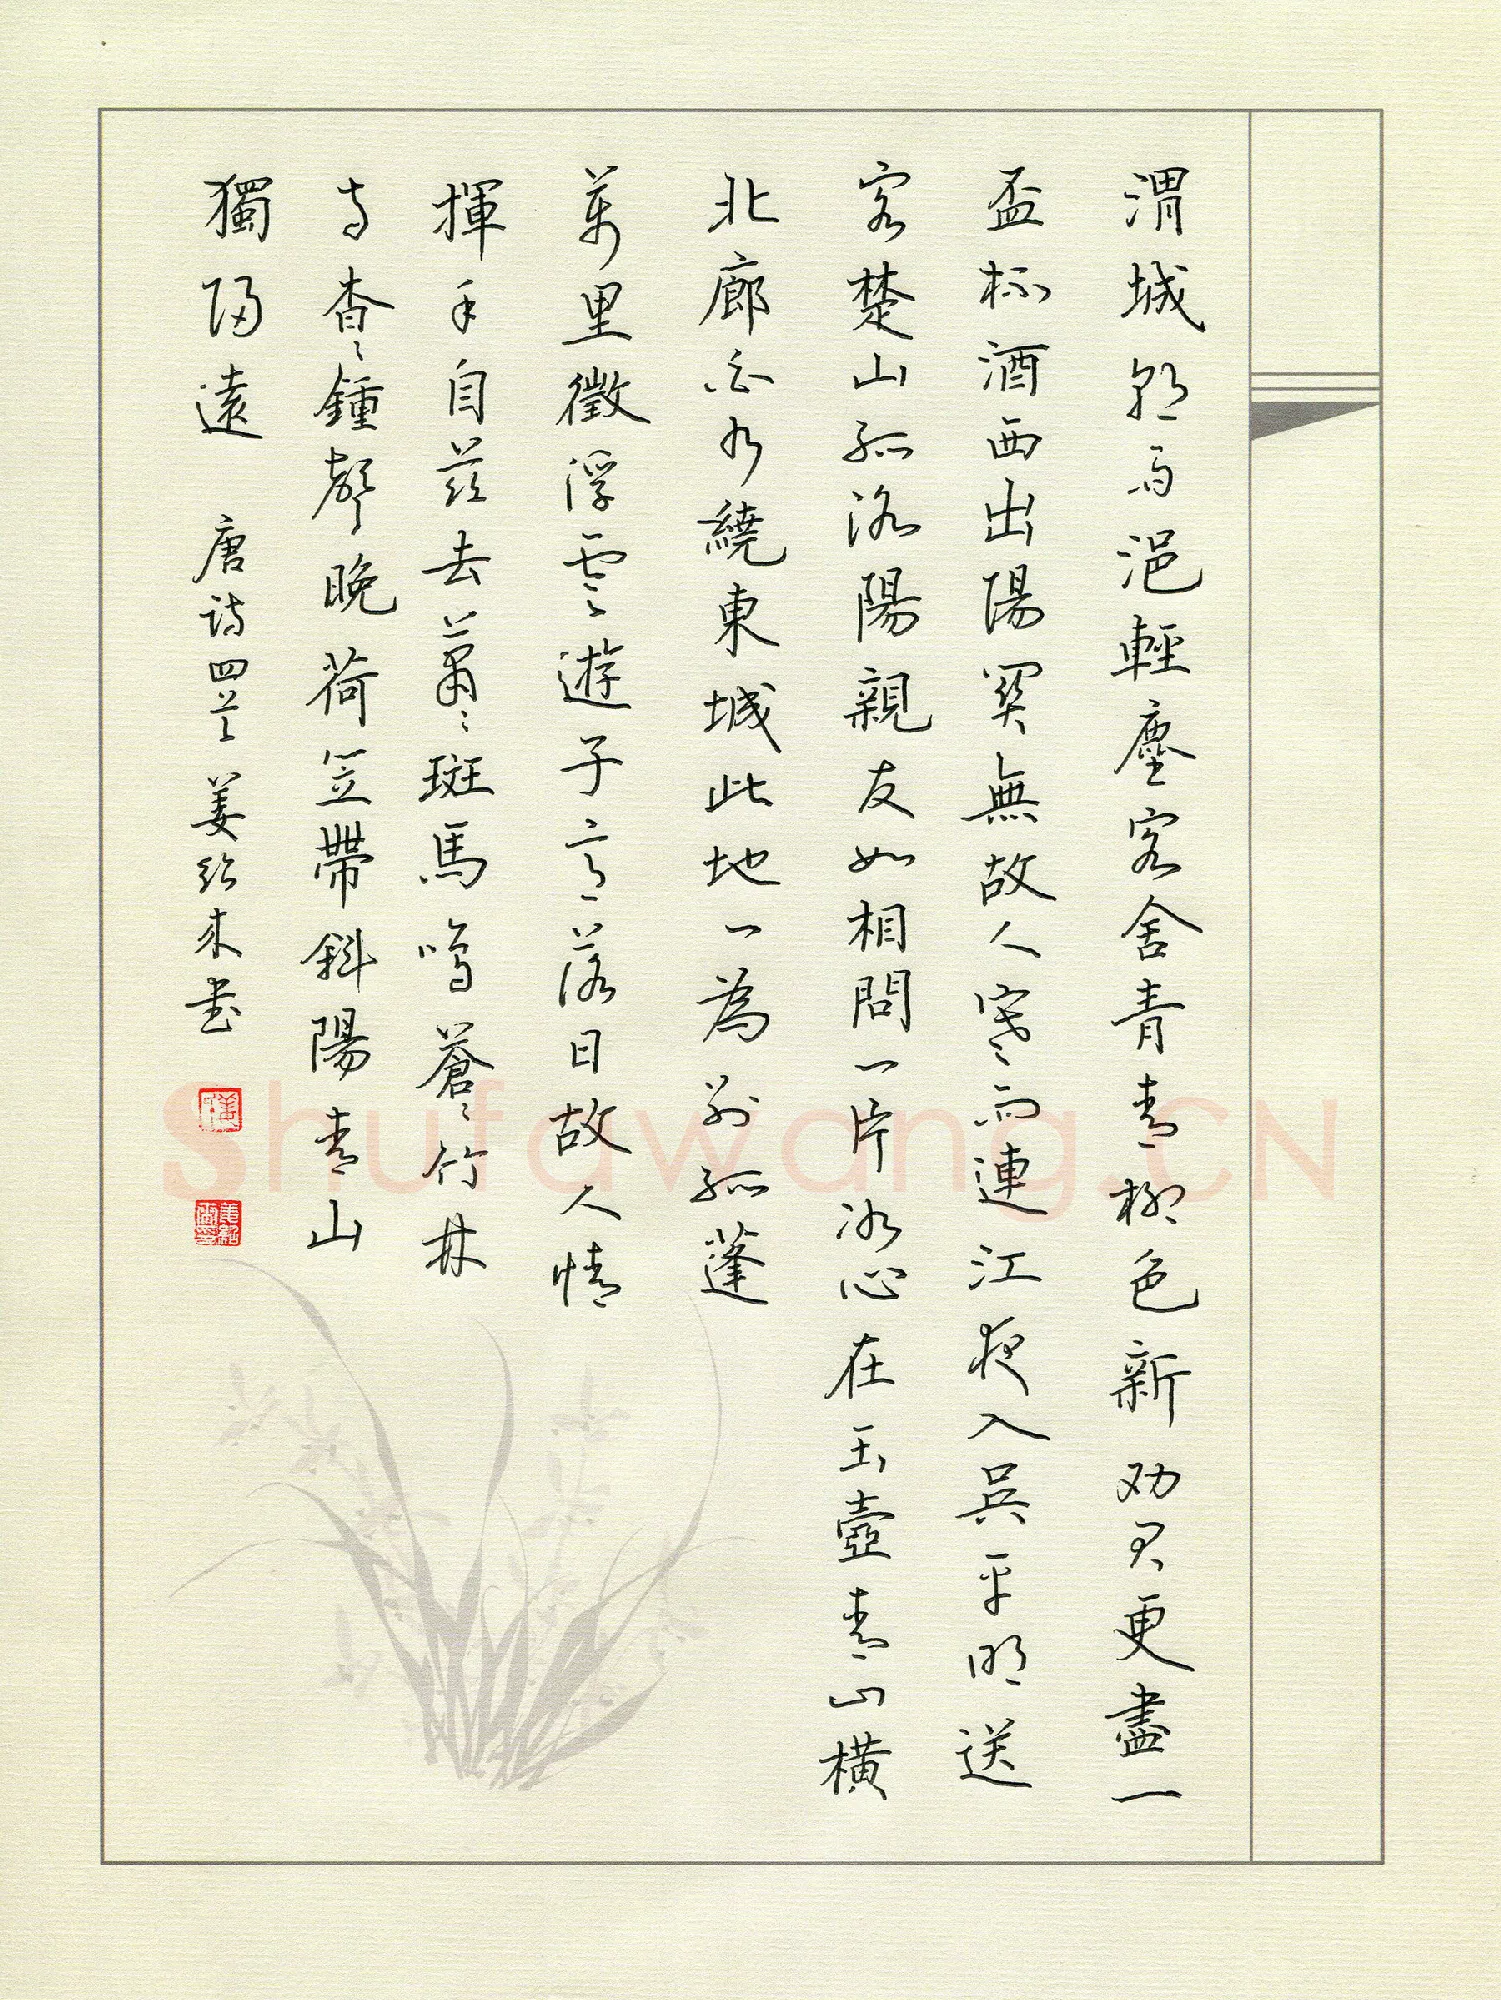 渭城朝雨浥輕塵客舍青青柳色新劝君更盡一
盃杯酒西出陽關無故人寒雨連江夜入吳平明送
客楚山孤洛陽親友如相問一片冰心在玉壺青山橫
北廊白水繞東城此地一為別孤蓬
萬里徵浮雲遊子意落日故人情
揮手自茲去蕭々斑馬鳴蒼々竹林
寺杳々鍾聲晚荷笠帶斜陽青山
獨歸遠 唐诗四首 姜绍来书
Shufawang.CN